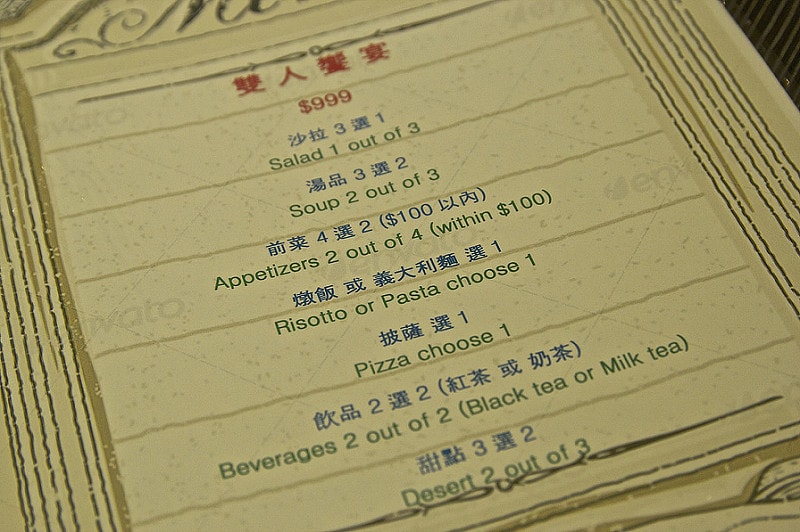 雙人饗宴
$999
沙拉 3 選 1
Salad 1 out of 3
湯品 3 選 2
Soup 2 out of 3
前菜 4 選 2 ($100 以內)
Appetizers 2 out of 4 (within $100)
燉飯 或 義大利麵 選 1
Risotto or Pasta choose 1
披薩 選 1
Pizza choose 1
飲品 2 選 2 (紅茶 或 奶茶)
Beverages 2 out of 2 (Black tea or Milk tea)
甜點 3 選 2
Desert 2 out of 3